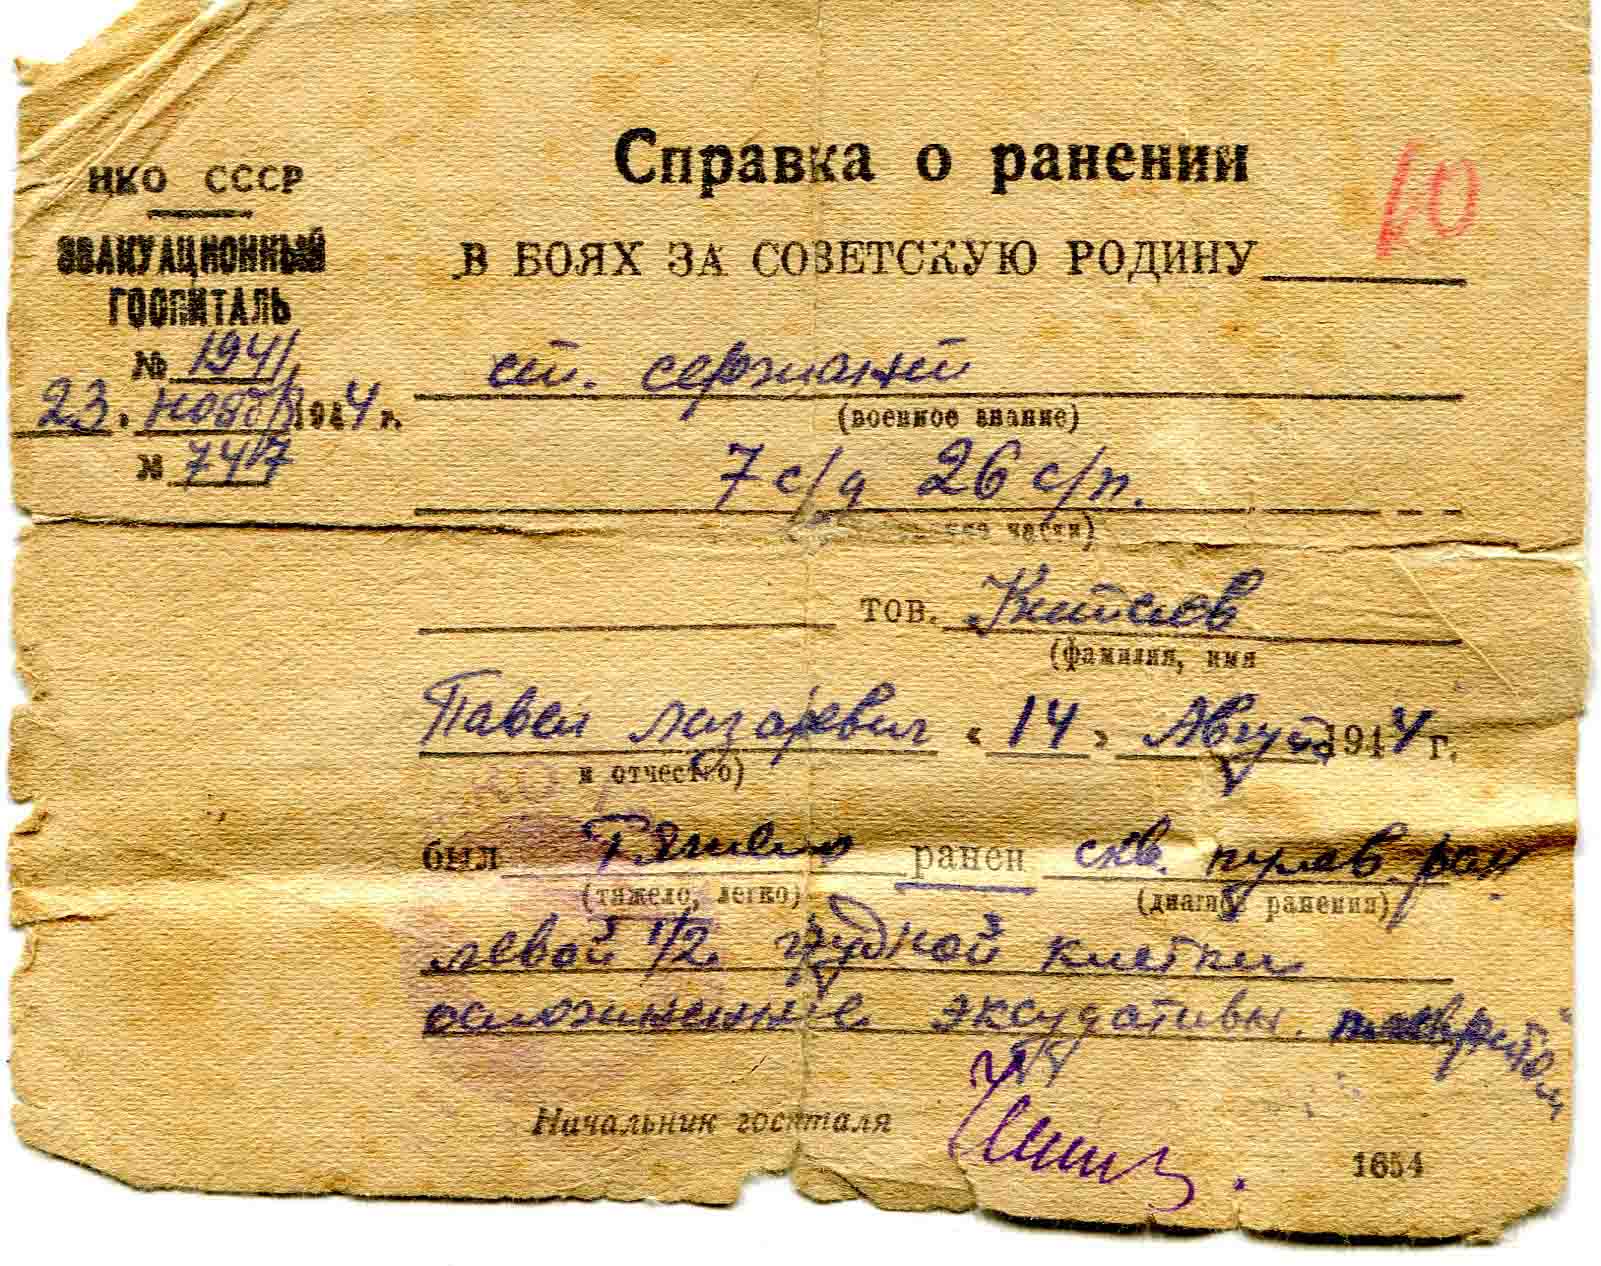 НКО СССР
ЭВАКУАЦИОННЫЙ
ГОСПИТАЛЬ
№ 1941
23. ноябр 1944 г.
№ 7417
Справка о ранении
10
В БОЯХ ЗА СОВЕТСКУЮ РОДИНУ
ст. сержант
(военное звание)
7 с/д 26 с/п.
части)
тов.
(фамилия, имя
Павел Лазаревич «14» Август 1944 г.
и отчество)
был Тяжело ранен скв. пулев. ран.
(тяжело, легко) (диагноз ранения)
левой 1/2 грудной клетки
осложненные эксудативн. плевритом
Начальник госпиталя
1654